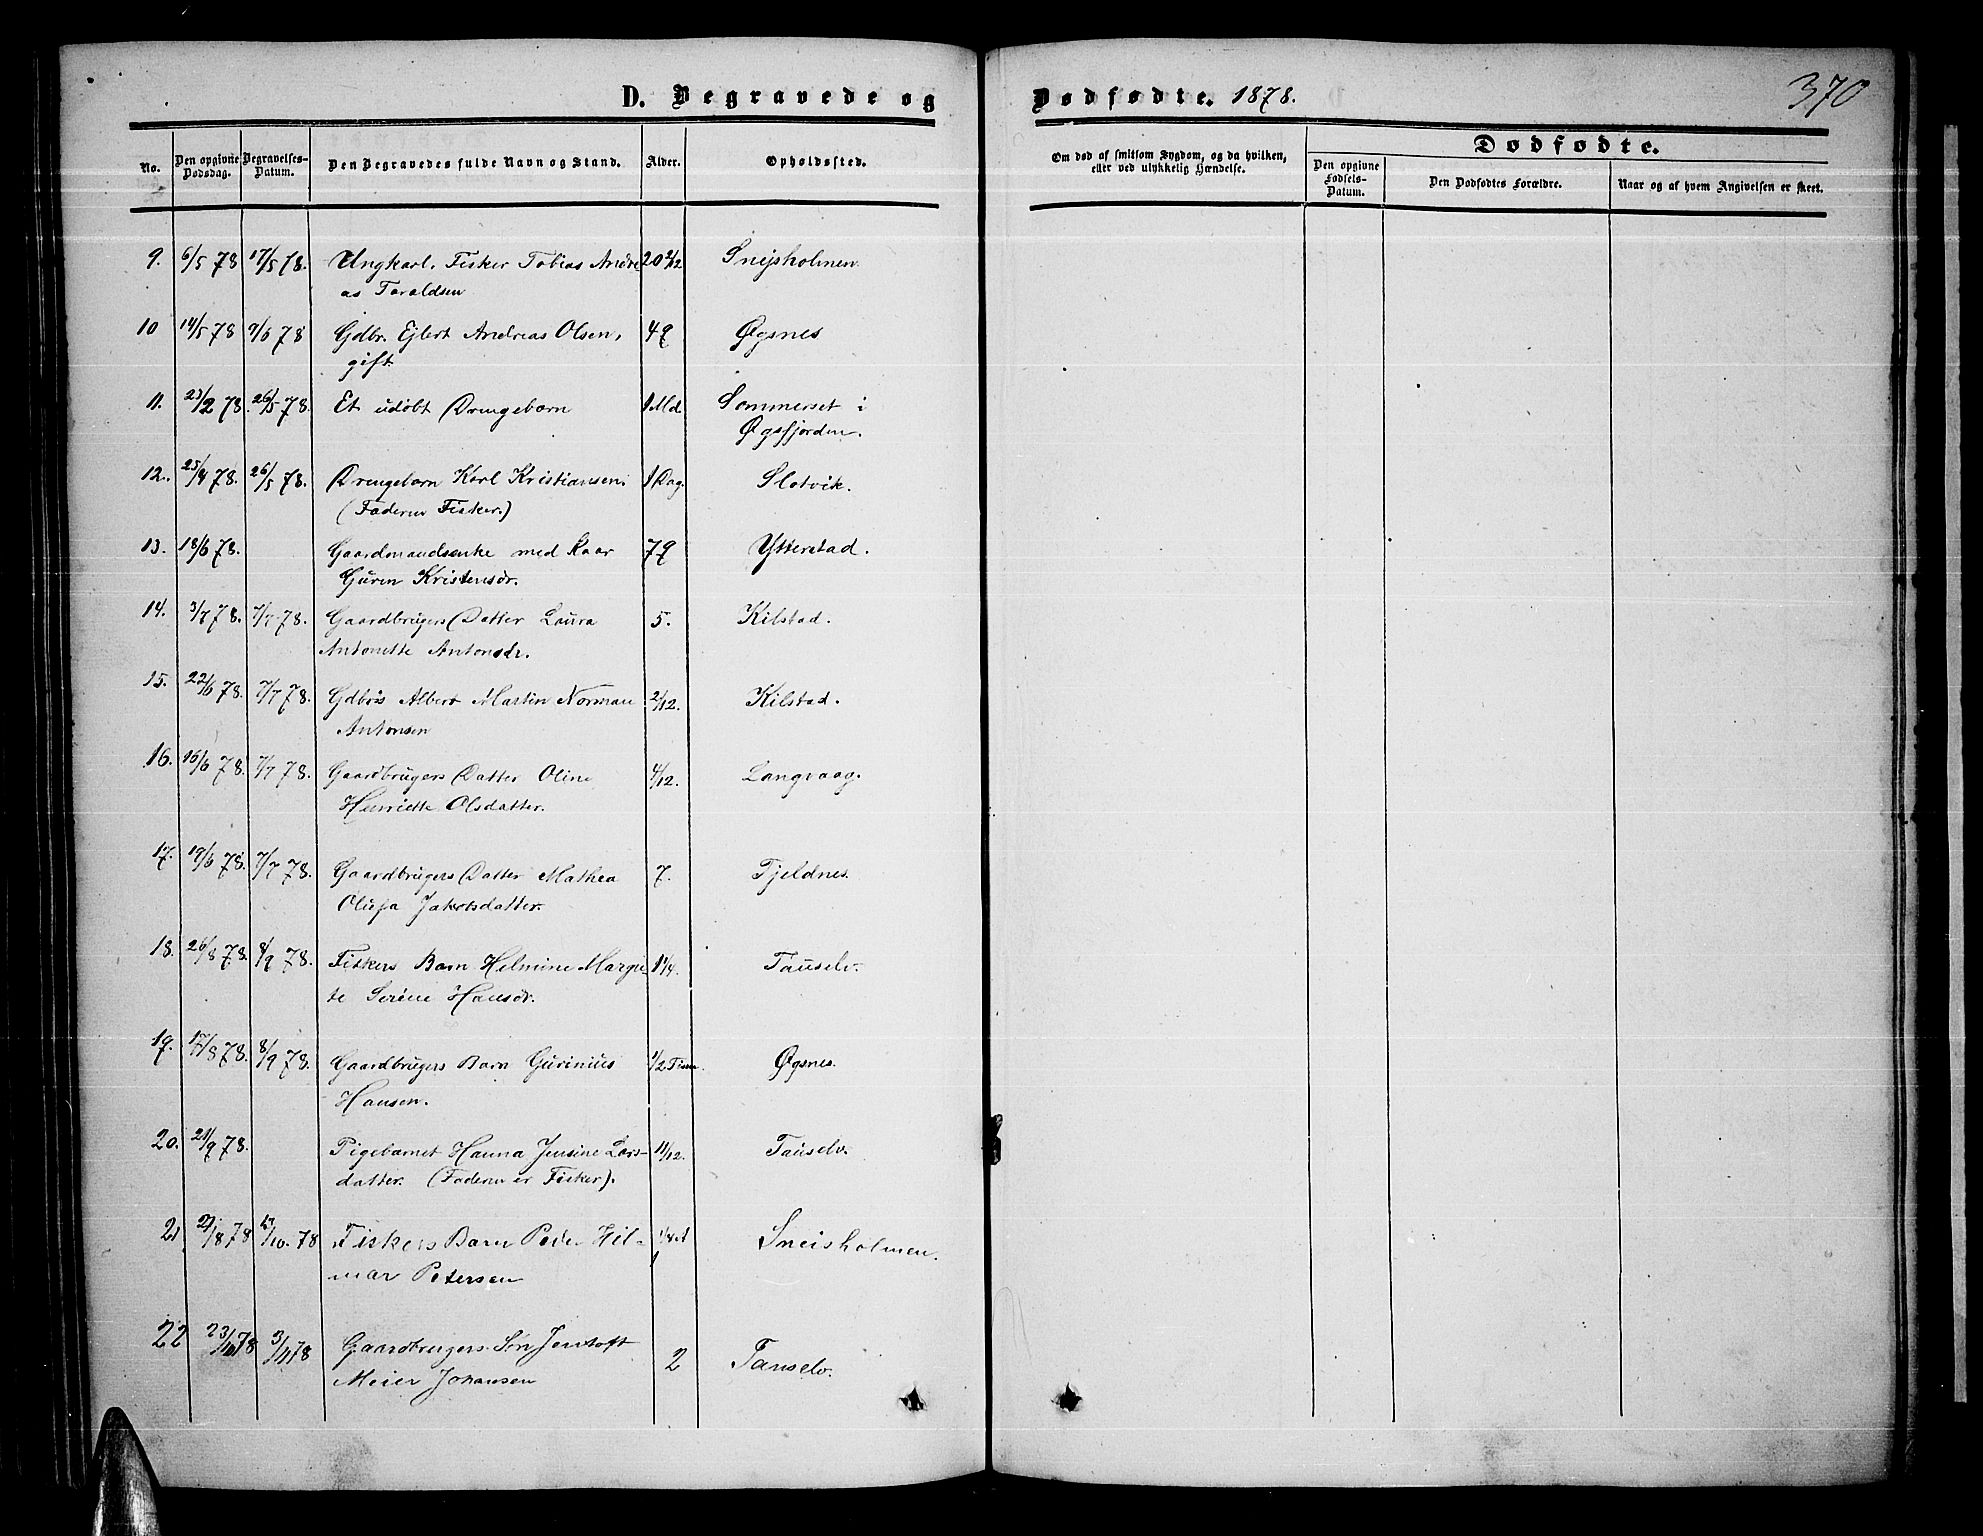 D. Begravede og Dødfødte. 1878. 370
No. Den opgivne Dødsdag. Begravelses-Datum. Den Begravedes fulde Navn og Stand. Alder. Opholdssted. Om død af smitsom Sygdom, og da hvilken, eller ved ulykkelig Hændelse. Dødfødte.
Den opgivne Fødsels-Datum. Den Dødfødtes Forældre. Naar og af hvem Angivelsen er skeet.
9. 6/5 78 17/5 78. Ungkarl, Fisker Tobias Andre 20 2/12 Snejsholmen
as Taraldsen
10 14/5 78 9/6 78 Gdbr. Ejlert Andreas Olsen, 49 Øgsnes
gift.
11. 23/2 78. 26/5 78. Et udøbt Drengebarn 1 Md. Sommerset i
Øgsfjorden.
12. 25/4 78. 26/5 78. Drengebarn Karl Kristiansen. 1 Dag. Slotvik.
(Faderen Fisker.)
13. 18/6 78. Gaardmandsenke med Kaar 79 Ytterstad.
Guren Kristensdr.
14. 3/7 78. 7/7 78. Gaardbrugers Datter Laura 5. Kilstad.
Antonette Antonsdr.
15. 22/6 78. 7/7 78. Gdbrs Albert Martin Norman 2/12. Kilstad.
Antonsen
16. 16/6 78. 7/7 78. Gaardbrugers Datter Oline 4/12. Langvaag.
Henriette Olsdatter.
17. 19/6 78. 7/7 78. Gaardbrugers Datter Mathea 7. Fjeldnes.
Olufa Jakobsdatter.
18. 26/8 78. 8/9 78. Fiskers Barn Hilmine Margre- 1 1/4. Tauselv.
te Serine Hansdr.
19. 17/8 78. 8/9 78. Gaardbrugers Barn Gurinius 1/2 Time. Øgsnes.
Hansen.
20. 21/9 78. Pigebarnet Hanna Jensine Lars- 11/12. Tauselv.
datter. (Faderen er Fisker).
21 27/8 78 13/10. 78 Fiskers Barn Peder Hil- 1/4 A Sneisholmen.
mar Petersen
22 23/10 78 3/11 78 Gaardbrugers Søn Jentoft
Meier Johansen 2 Tauselv.